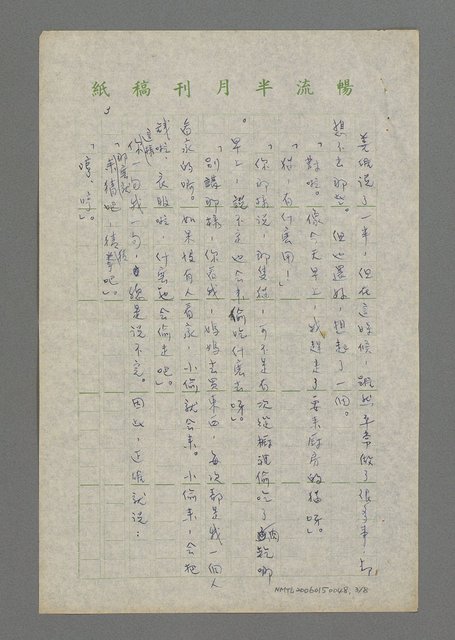 暢流半月刊稿紙
美urgent說了一半,但在這時候,雖然平常做了很多事,却
想不出那些。但也還好,想起了一個。
「對啦。像今天早上,我趕走了要來廚房的貓呀。」
「貓,有什麼用!」
「你那樣說,那隻貓,可不是有次從櫥裡偷吃了肉乾哪
。早上,說不定也會來偷吃什麼去呀。」
「別講那樣,你看我,媽媽去買東西,每次都是我一個人
看家的呀。如果沒有人看家,小偷就會來。小偷來,會把
錢啦、衣服啦,什麼也會偷走吧。」
這樣你一句我一句,總是說不完。因此,這 就說:
「那麼 來猜吧,猜拳吧。」
「嗯,好。」
NMTL20060150048, 3/8